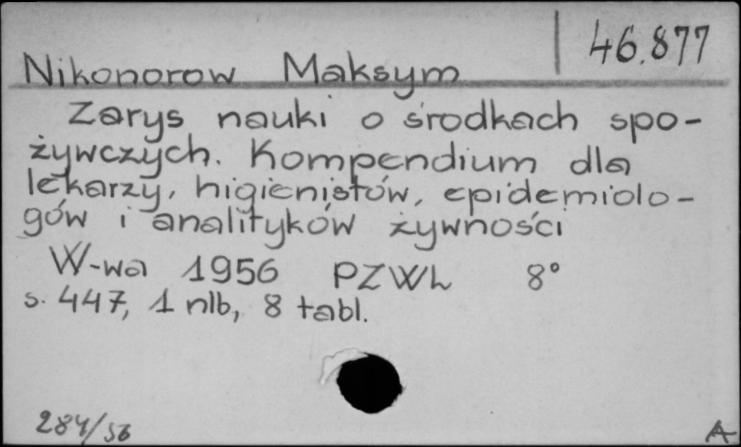 46.877
Nikonorow Maksym
Zarys nauki o środkach spo-
żywczych. Kompendium dla
lekarzy, higienistów, epidemiolo-
gów i analityków żywności
W-wa 1956 PZWL 8°
s. 447, 1 nlb, 8 tabl.
284/56
A